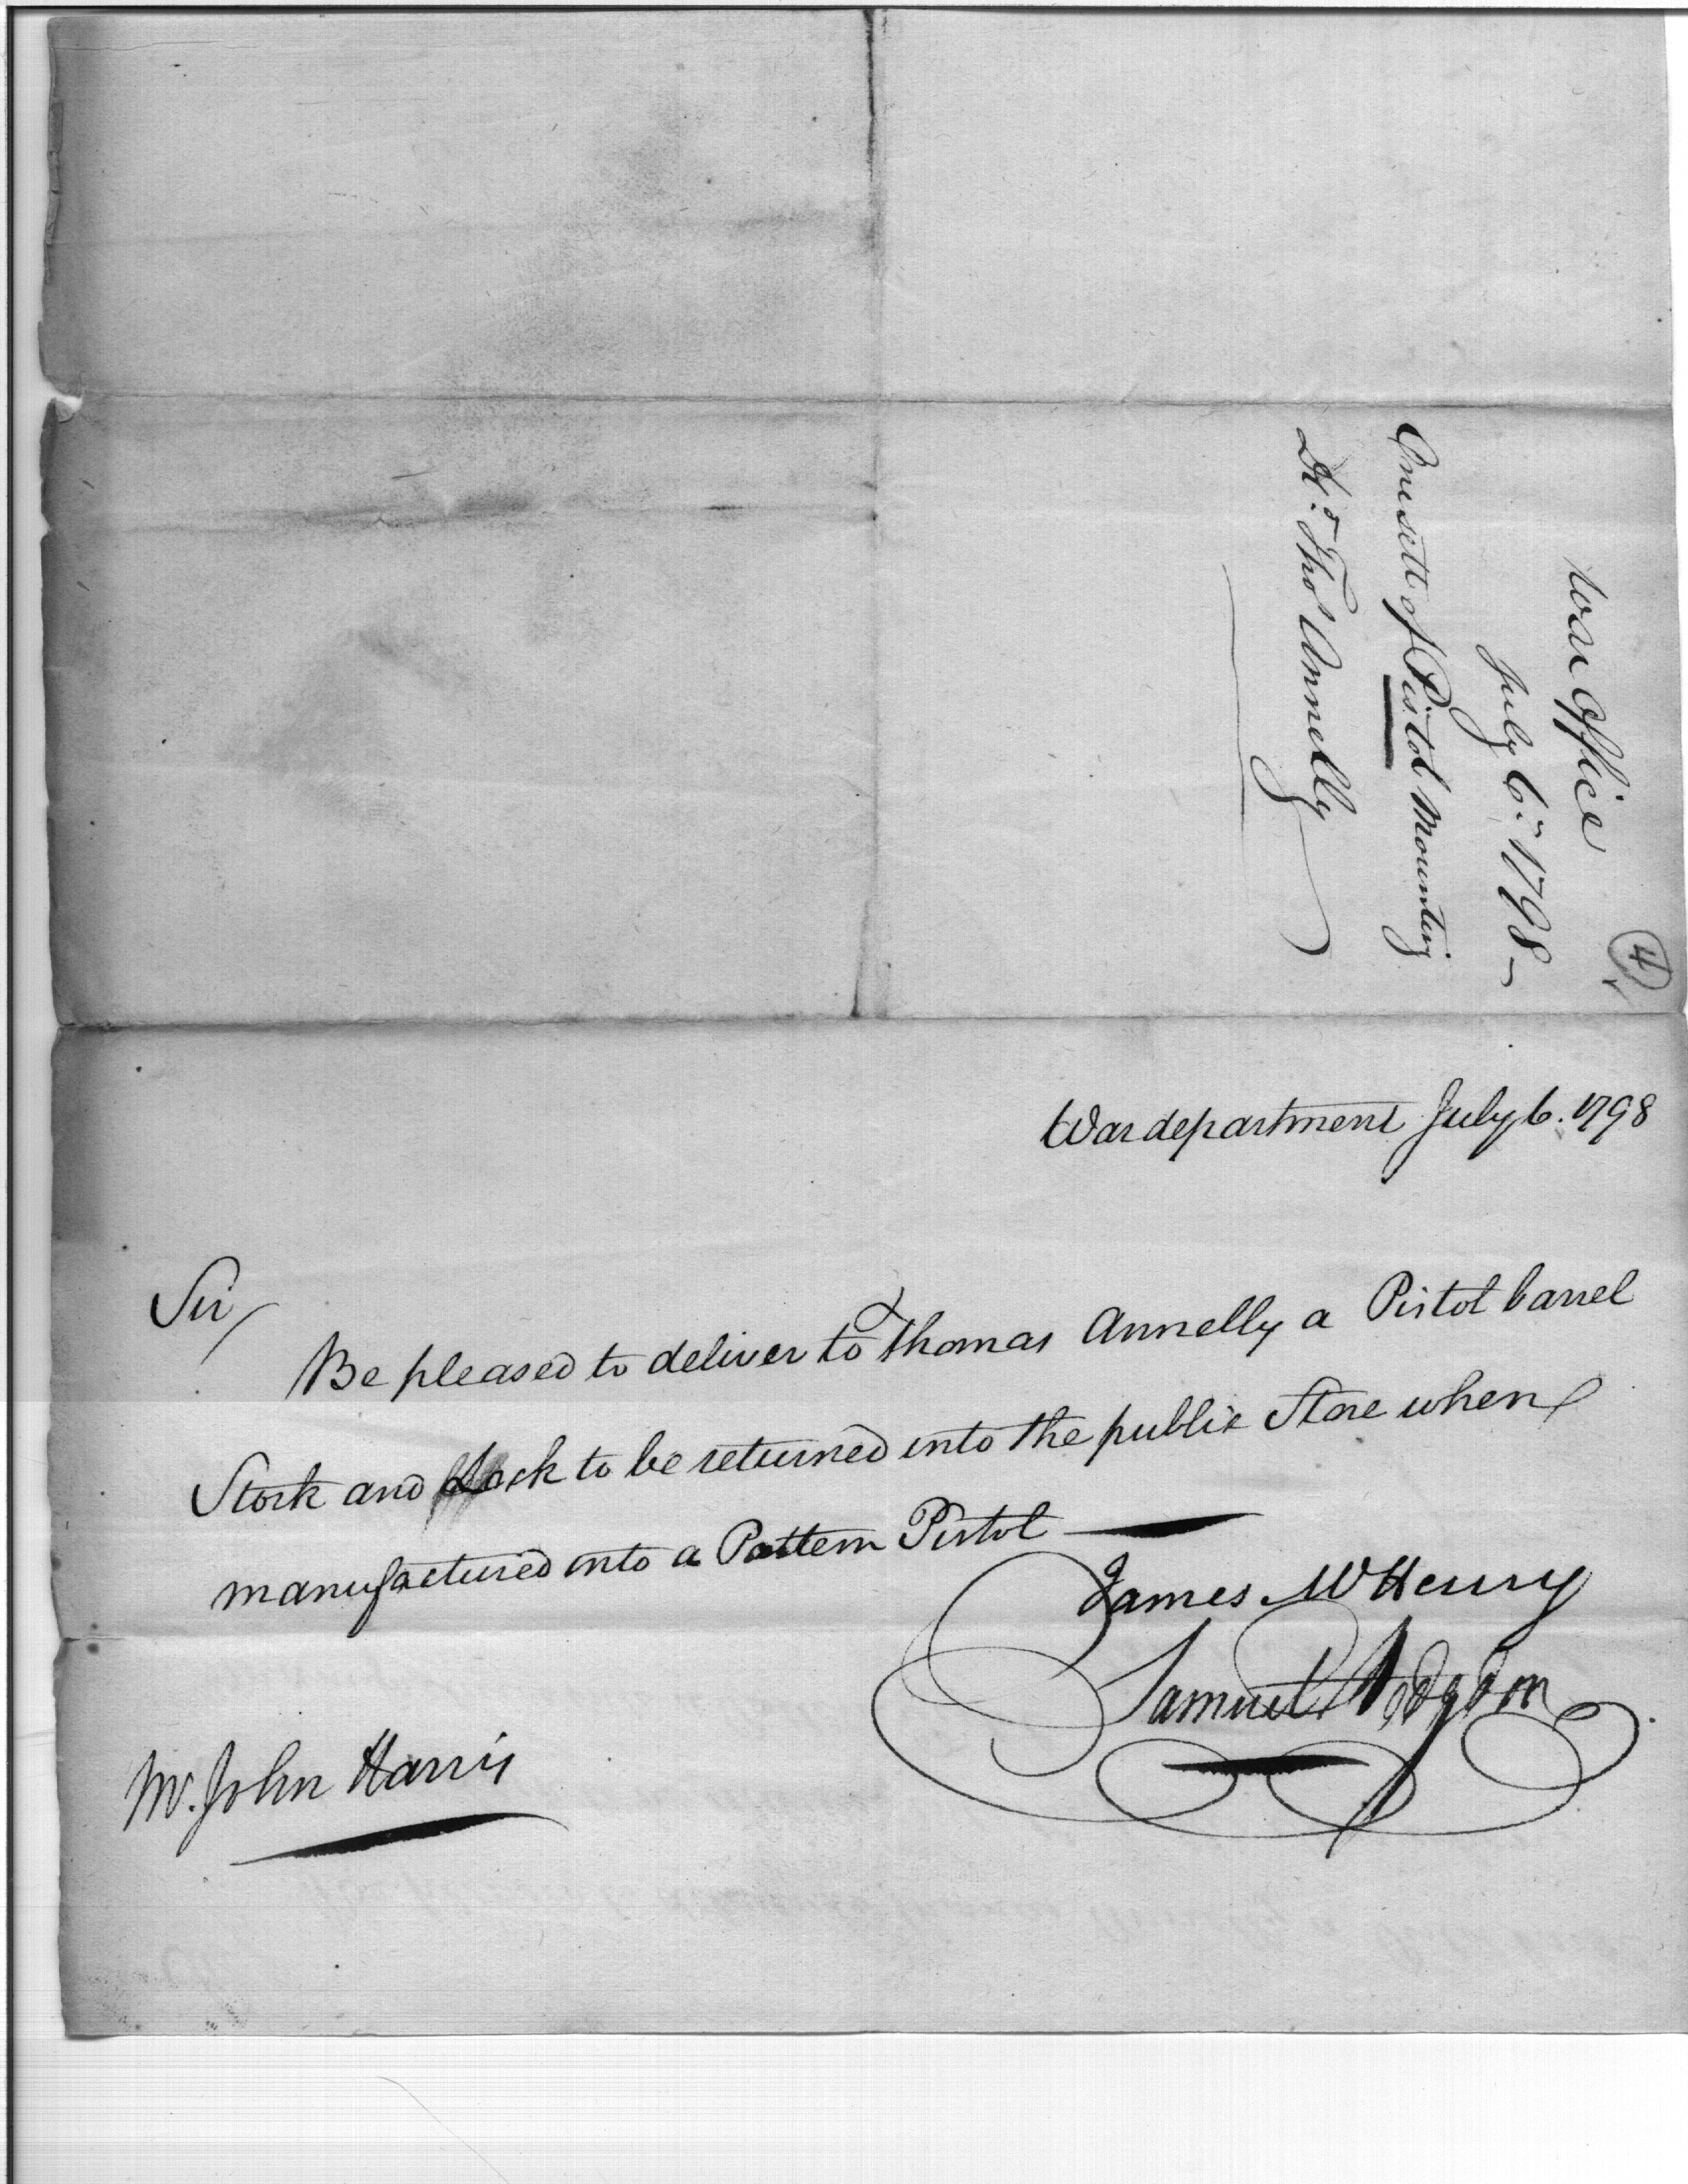 4
War Office
July 6. 1798 -
One sett of Pistol Mounting
Dd. Thos Annelly
War department July 6. 1798
Sir
Be pleased to deliver to Thomas Annelly a Pistol barrel
Stock and Lock to be returned into the public Store when
manufactured into a Pattern Pistol
James McHenry
Samuel Hodgdon
Mr. John Harris